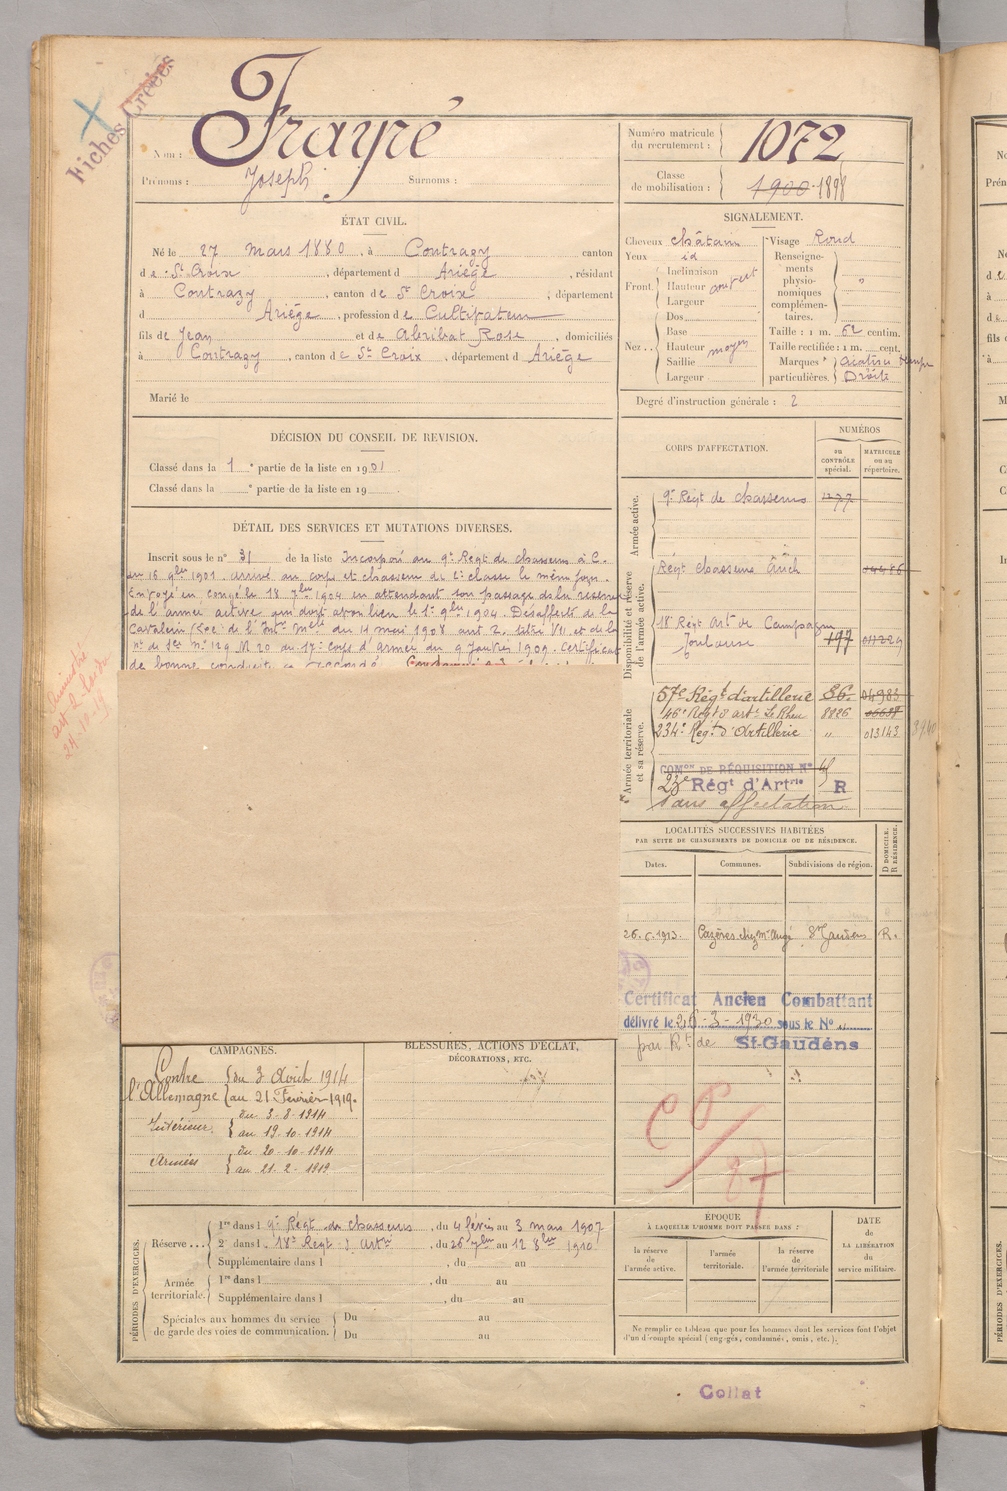 Fiches Créées
Nom : Frayré
Prénoms : Joseph Surnoms :
Numéro matricule du recrutement : 1072
Classe de mobilisation : 1900 1898
ÉTAT CIVIL.
Né le 27 mars 1880, à Contrazy canton
de St Croix, département d Ariège, résidant
à Contrazy, canton de St Croix, département
d Ariège, profession de Cultivateur
fils de Jean et de Abribat Rose, domiciliés
à Contrazy, canton de St Croix, département d Ariège
Marié le
SIGNALEMENT.
Cheveux châtain
Yeux id
Front. Inclinaison
Hauteur
Largeur
Nez.. Dos
Base
Hauteur moyen
Saillie
Largeur
Visage Rond
Renseignements physionomiques complémentaires.
Taille : 1 m. 62 centim.
Taille rectifiée : 1 m. cent.
Marques particulières. Droite
Degré d'instruction générale : 2
DÉCISION DU CONSEIL DE REVISION.
Classé dans la 1e partie de la liste en 1901.
Classé dans la e partie de la liste en 19 .
DÉTAIL DES SERVICES ET MUTATIONS DIVERSES.
Inscrit sous le n° 31 de la liste Incorporé au 9e Régt de chasseurs à C.
du 16 9bre 1901 arrivé au corps et chasseur de 2e classe le même jour.
Envoyé en congé le 18 7bre 1904 en attendant son passage ds la réserve
de l'armée active qui doit avoir lieu le 1er 9bre 1904. Désaffecté de la
Cavalerie du 11 mai 1908 art. 2. titre VII et de la
n° 129 M 20 du 17e corps d'armée du 9 Janvier 1909. Certificat
de bonne conduite accordé.
CORPS D'AFFECTATION.
NUMÉROS
au CONTRÔLE spécial.
MATRICULE ou au répertoire.
Armée active.
9e Régt de chasseurs 1277
Disponibilité et réserve de l'armée active.
Régt chasseurs Auch
18e Régt Art de Campagne
Toulouse 197
Armée territoriale et sa réserve.
57e Régt d'artillerie 86. 04983
46e Régt d'art. 8826
234e Régt d'Artillerie " 013143
COMon DE RÉQUISITION N°
23e Régt d'Artrie R
Sans affectation
LOCALITÉS SUCCESSIVES HABITÉES
PAR SUITE DE CHANGEMENTS DE DOMICILE OU DE RÉSIDENCE.
Dates. Communes. Subdivisions de région. D DOMICILE. R RÉSIDENCE.
26.5.1913. Cazères St Gaudens R.
Certificat Ancien Combattant
délivré le 26-3-1930 sous le N°
par Rt de St-Gaudens
CAMPAGNES.
Contre l'Allemagne du 3 Août 1914
au 21 Février 1919.
Intérieur. du 3-8-1914
au 19-10-1914
Armées du 20-10-1914
au 21-2-1919
BLESSURES, ACTIONS D'ÉCLAT,
DÉCORATIONS, ETC.
CP/87
PÉRIODES D'EXERCICES.
Réserve... 1re dans l 9e Régt de chasseurs, du 4 févier au 3 mars 1907
2e dans l 18e Régt d'Artrie, du 26 7bre au 12 8bre 1910
Supplémentaire dans l , du au
Armée territoriale. 1re dans l , du au
Supplémentaire dans l , du au
Spéciales aux hommes du service de garde des voies de communication. Du au
Du au
ÉPOQUE
À LAQUELLE L'HOMME DOIT PASSER DANS :
la réserve de l'armée active.
l'armée territoriale.
la réserve de l'armée territoriale
DATE DE LA LIBÉRATION du service militaire.
Ne remplir ce tableau que pour les hommes dont les services font l'objet
d'un décompte spécial (engagés, condamnés, omis, etc.).
Collat